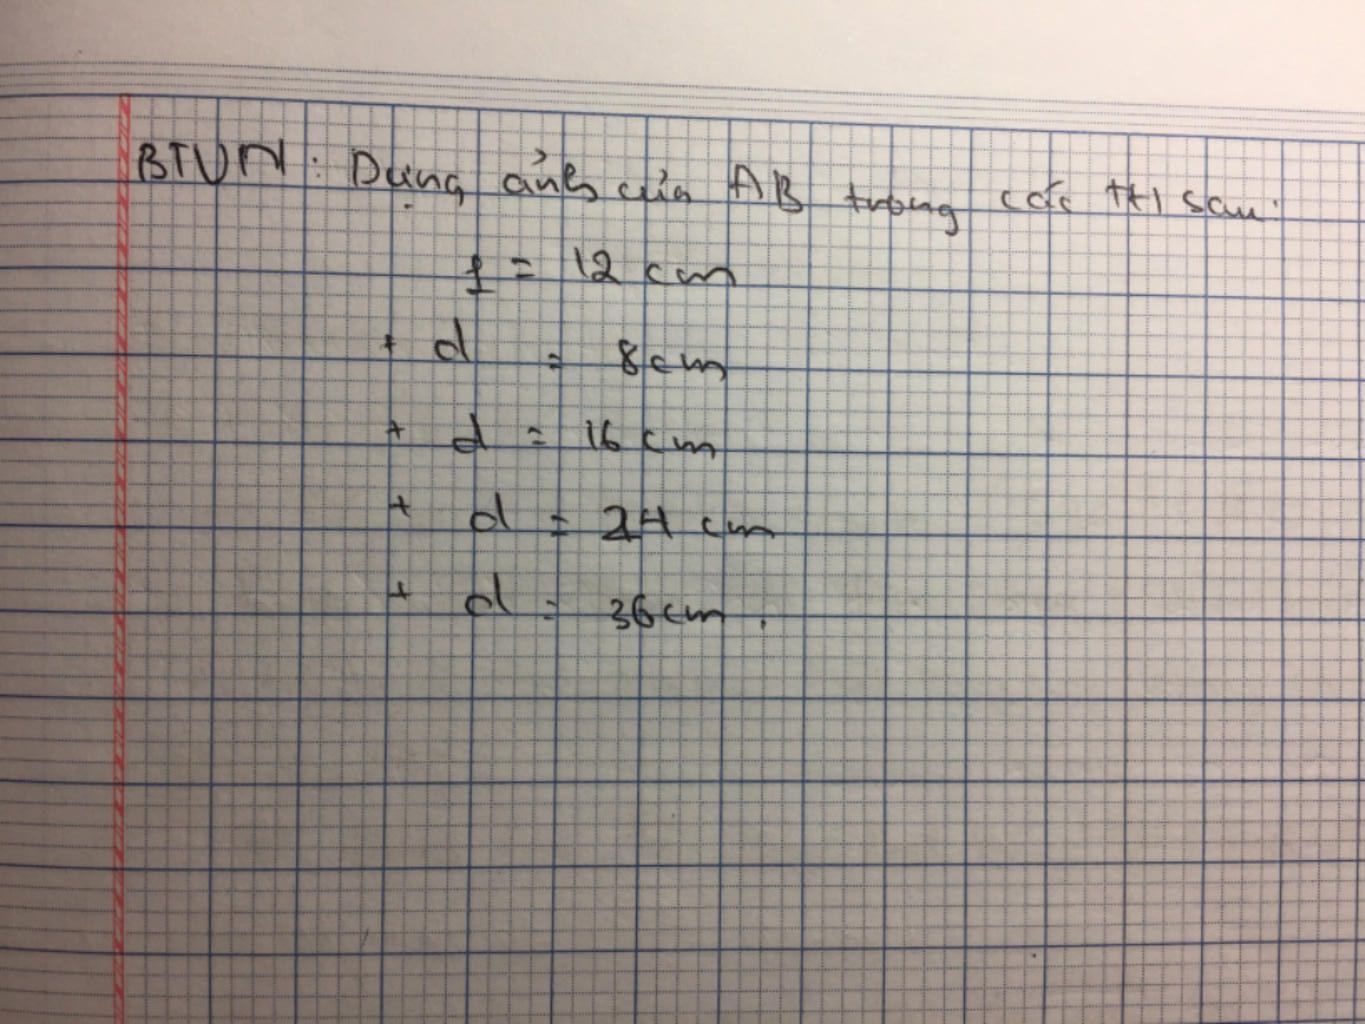 BTVN: Dựng ảnh của AB trong các TH sau:
f = 12 cm
+ d = 8cm
+ d = 16 cm
+ d = 24 cm
+ d = 36cm.